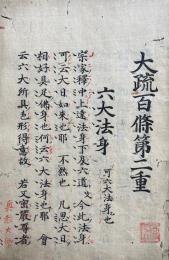 大疏百條第二重
六大法身
可六大法身也
宗家釋中上達法身下及六道文今此法身
可云大日如來也耶 不然也 凡思大日
相好具足佛身也何六大法身也耶 會
云六大所具色形得意故 若又密嚴尊者